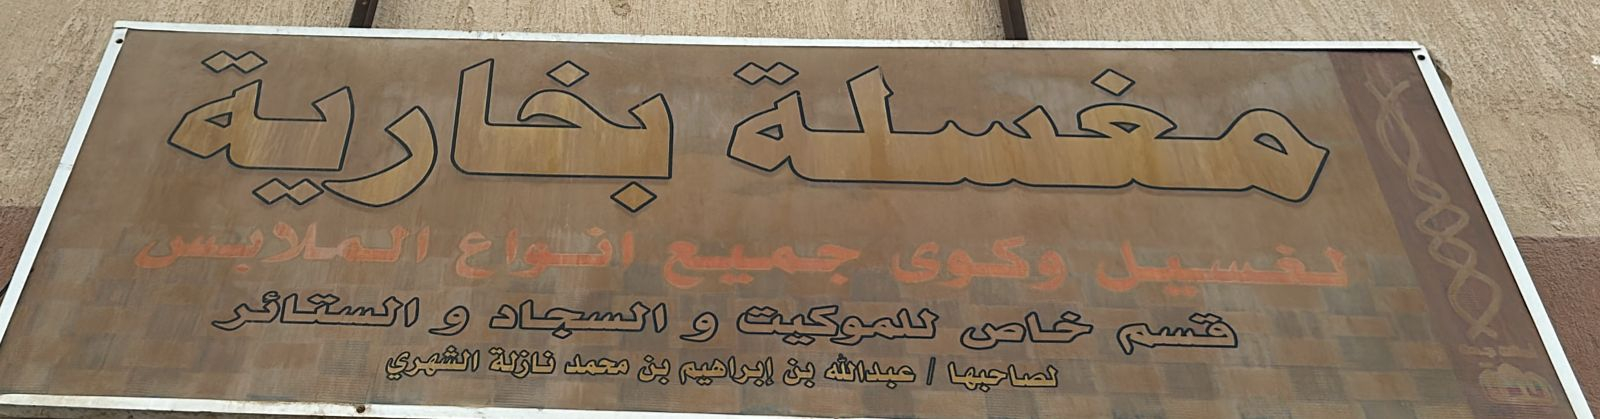 مغسلة بخارية
لغسيل وكوى جميع انواع الملابس
قسم خاص للموكيت و السجاد و الستائر
لصاحبها / عبدالله بن إبراهيم بن محمد نازلة الشهري